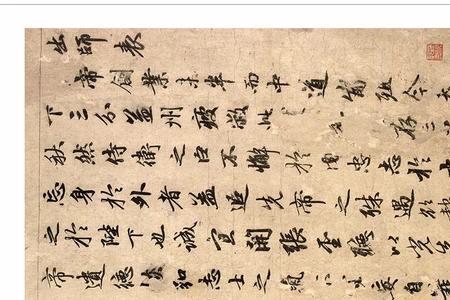 出師表
帝創業未半而中道崩殂今天
下三分益州疲敝此存亡
秋然侍衛之臣不懈於内忠志於
忘身於外者蓋追先帝之殊遇欲
之於陛下也誠宜開張聖聽以光
帝遺德恢弘志士之氣不宜妄自